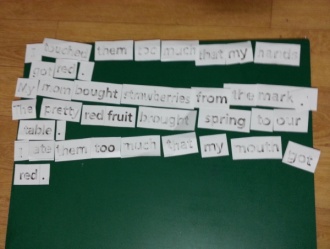 I touched them too much that my hands
got red.
My mom bought strawberries from the mark.
The pretty red fruit brought spring to our
table.
I ate them too much that my mouth got
red.